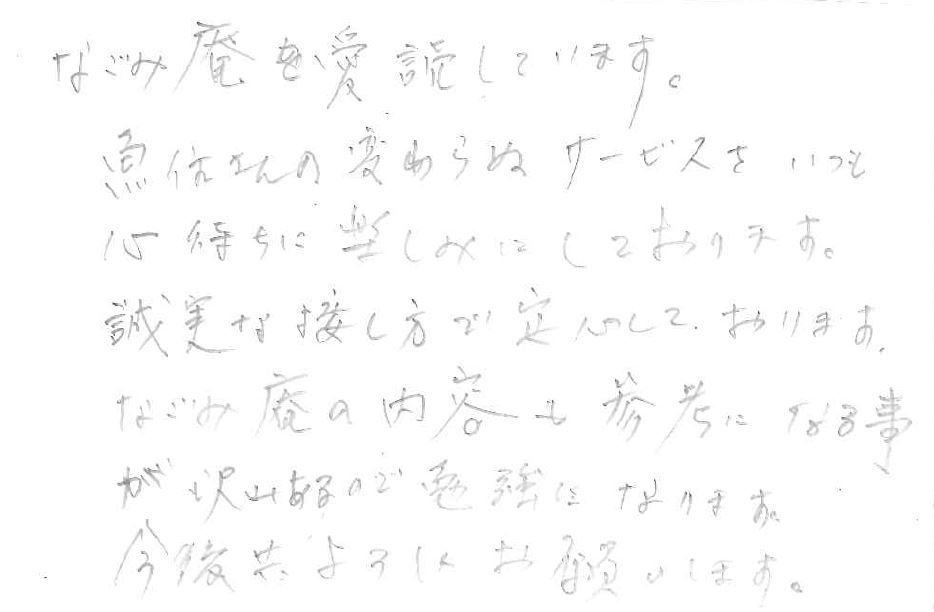 なごみ庵を愛読しています。
魚住さんの変わらぬサービスをいつも
心待ちに楽しみにしております。
誠実な接し方で安心しております。
なごみ庵の内容も参考になる事
が沢山あるので勉強になります。
今後共よろしくお願いします。